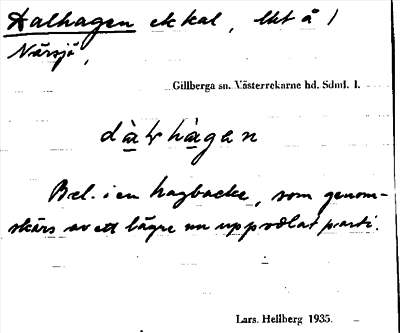 Dalhagen ek kal, lht å 1
Närsjö,
Gillberga sn. Västerrekarne hd. Sdml. l.
dàlhàgan
Bel. i en hagbacke, som genom-
skärs av ett lägre nu uppodlat parti.
Lars. Hellberg 1935.